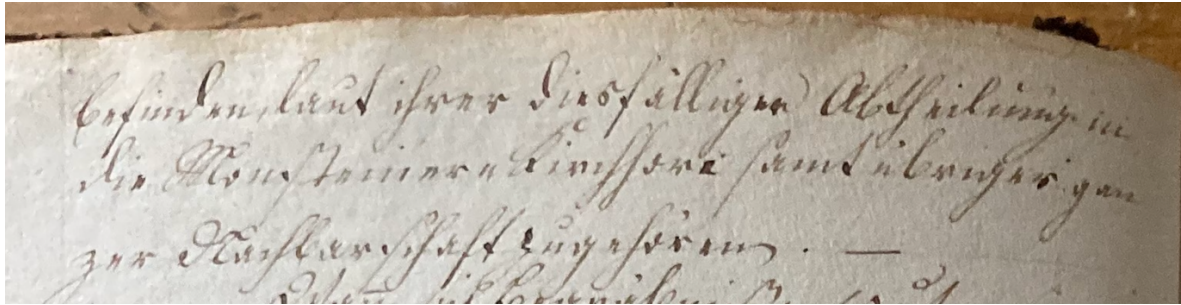 befinden, laut ihrer diesfälliger Abtheilung in
die Monsteinere Kirchhöri samt übriger gan
zer Nachbarschaft zugehören. —